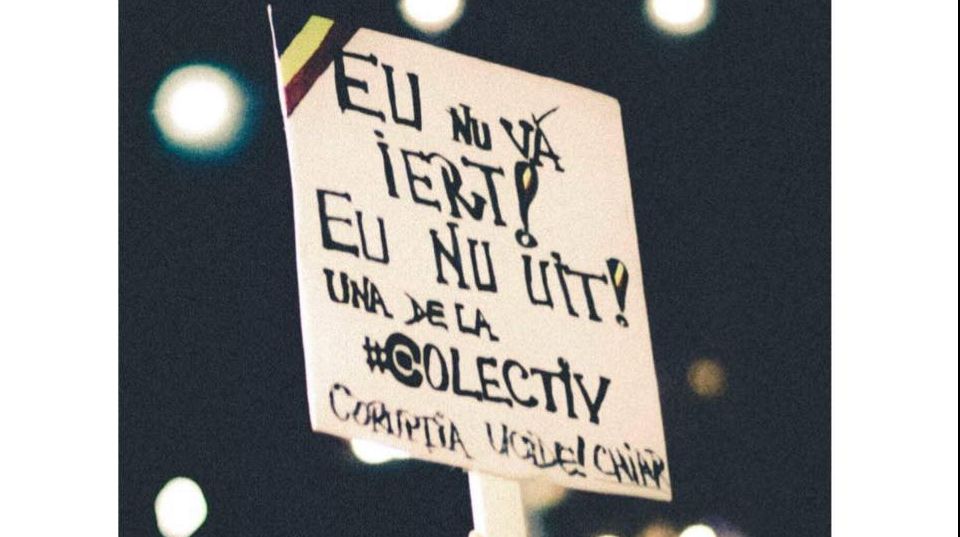 EU NU VĂ
IERT!
EU NU UIT!
UNA DE LA
#COLECTIV
CORUPTIA UCIDE! CHIAR